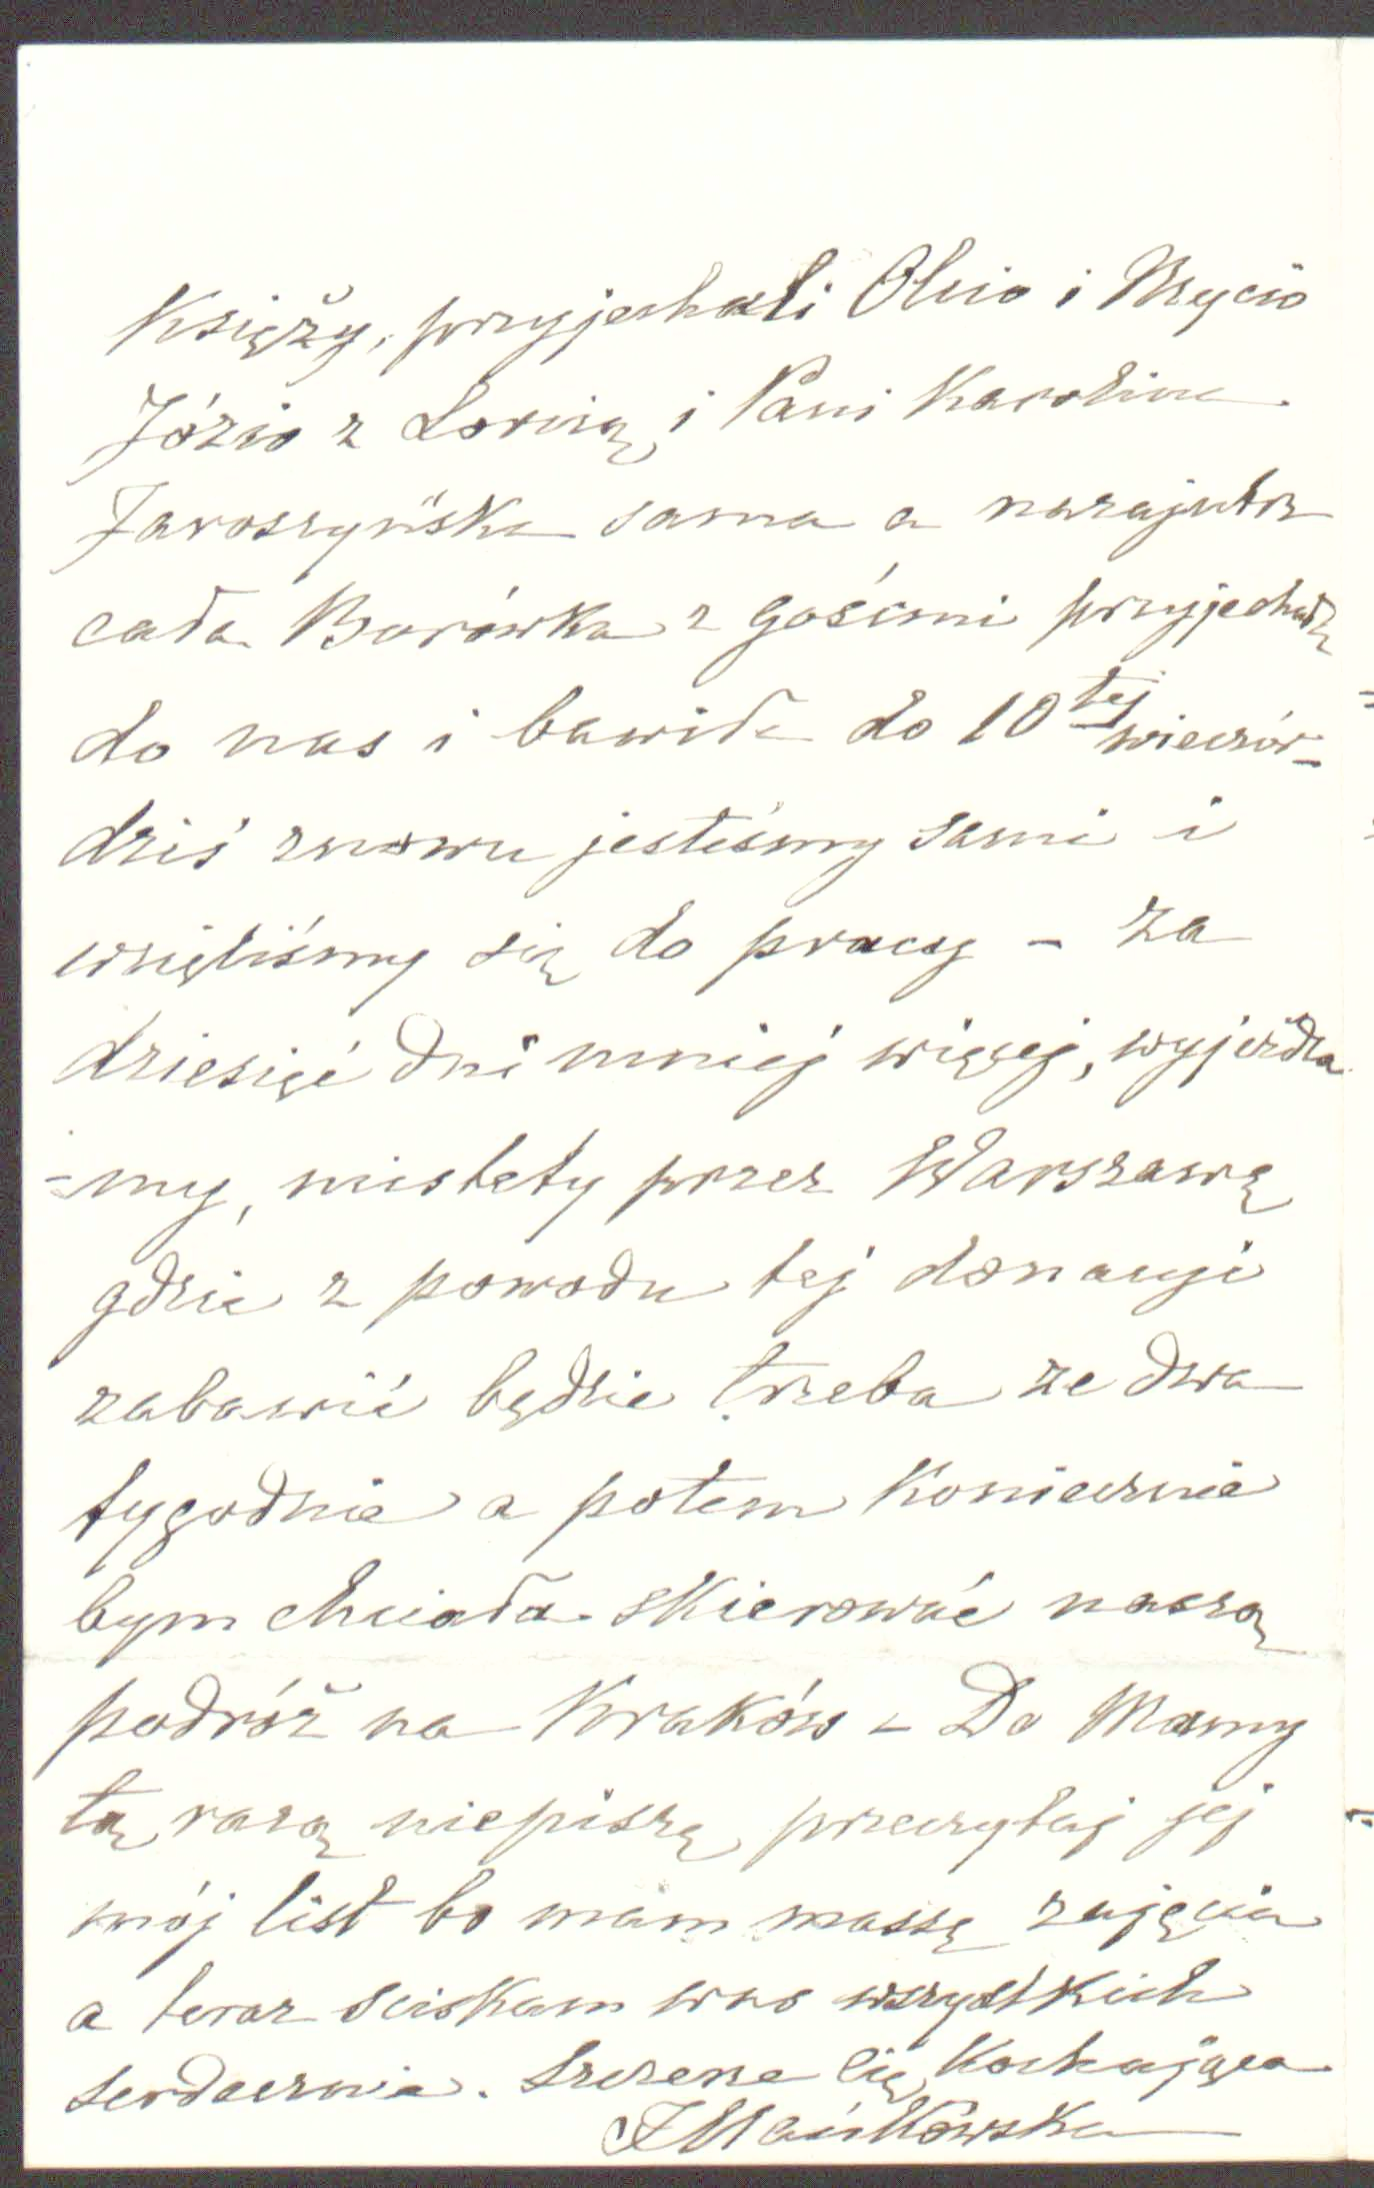 Księży, przyjechali Olcio i Mycio
Józio z Lornią i Pani Karolina
Jaroszyńska sama a nazajutrz
cała Borówka z gośćmi przyjechała
do nas i bawiła do 10tej wieczór –
dziś znowu jesteśmy sami i
wzięliśmy się do pracy – Za
dziesięć dni mniej więcej, wyjeżdża
-my, niestety przez Warszawę
gdzie z powodu tej donacyi
zabawić będzie trzeba ze dwa
tygodnie a potem koniecznie
bym chciała skierować naszą
podróż na Kraków – Do Mamy
tą razą niepiszę, przeczytaj jej
mój list bo mam massę zajęcia
a teraz sciskam was wszystkich
serdecznie. Szczerze Cię Kochająca
J Mańkowska